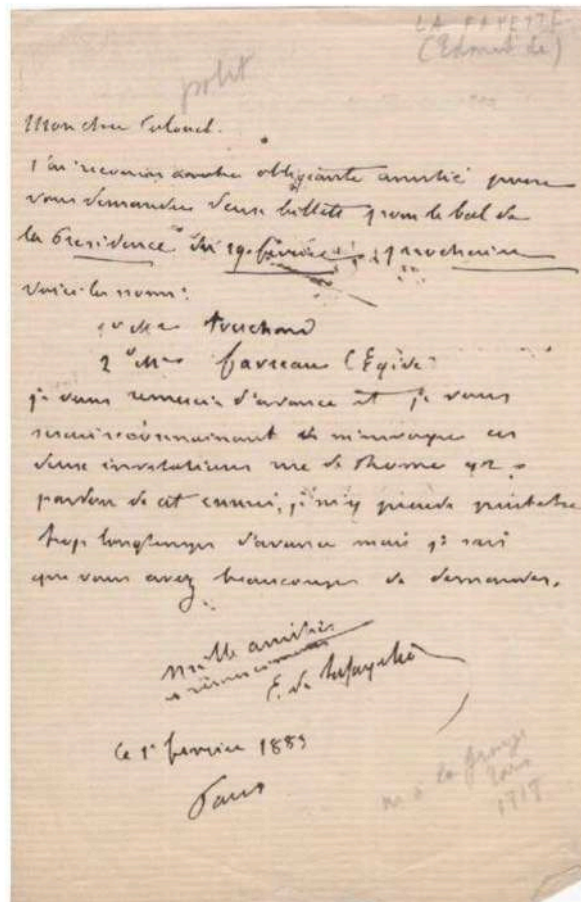 LA FAYETTE
(Edmond de)
polit
Mon cher Colonel.
J'ai recours à votre obligeante amitié pour
vous demander deux billets pour le bal de
la Présidence du 19 février prochain
voici les noms:
1° Mr Touchard
2° Mr Favreau (Egide)
je vous remercie d'avance et je vous
serais reconnaissant de m'envoyer ces
deux invitations rue de
pardon de cet ennui, j'm'y prends peut-être
trop longtemps d'avance mais je sais
que vous avez beaucoup de demandes.
mille amitiés
E. de Lafayette
Ce 1er février 1883
Paris
né à la Grange
1818